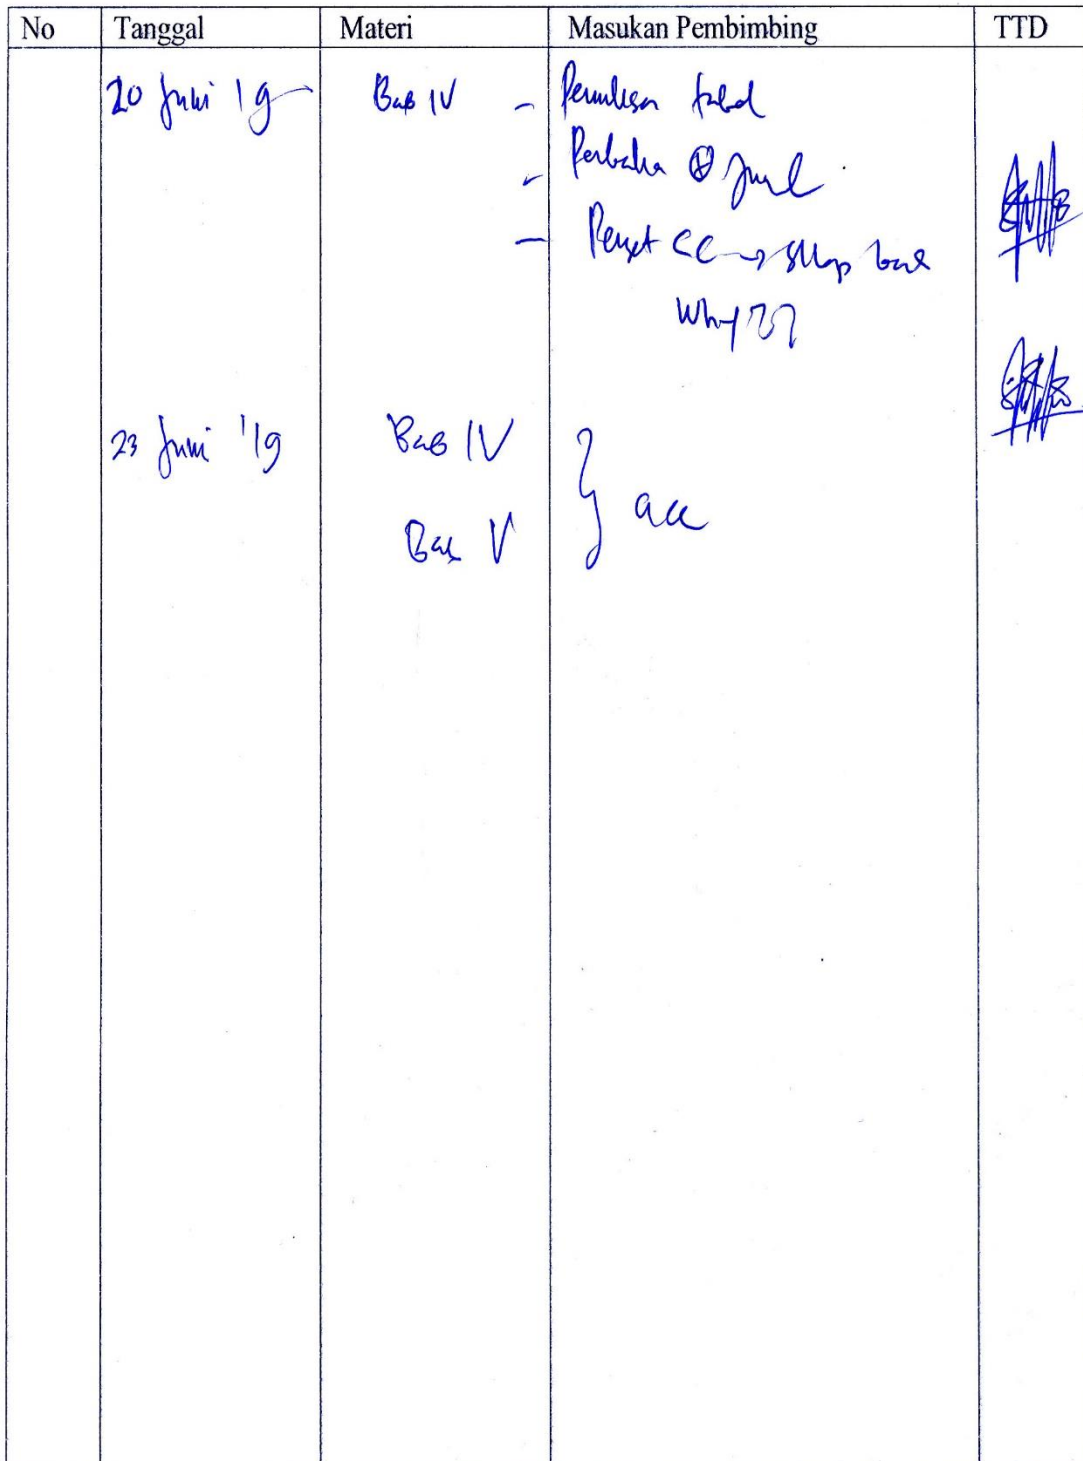 No Tanggal Materi Masukan Pembimbing TTD
20 Juni 19 Bab IV - Penulisan tabel
- Perbaikan
- CC → sikap
Why??
23 Juni '19 Bab IV } acc
Bab V